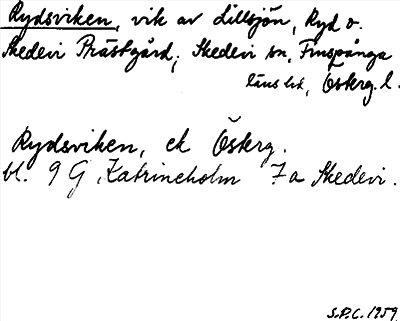 Rydsviken, vik av Lillsjön, Ryd o.
Skedevi Prästgård, Skedevi sn, Finspånga
läns hd, Österg. l.
Rydsviken, ek Österg.
bl. 9 G Katrineholm 7a Skedevi.
S.P.C. 1959